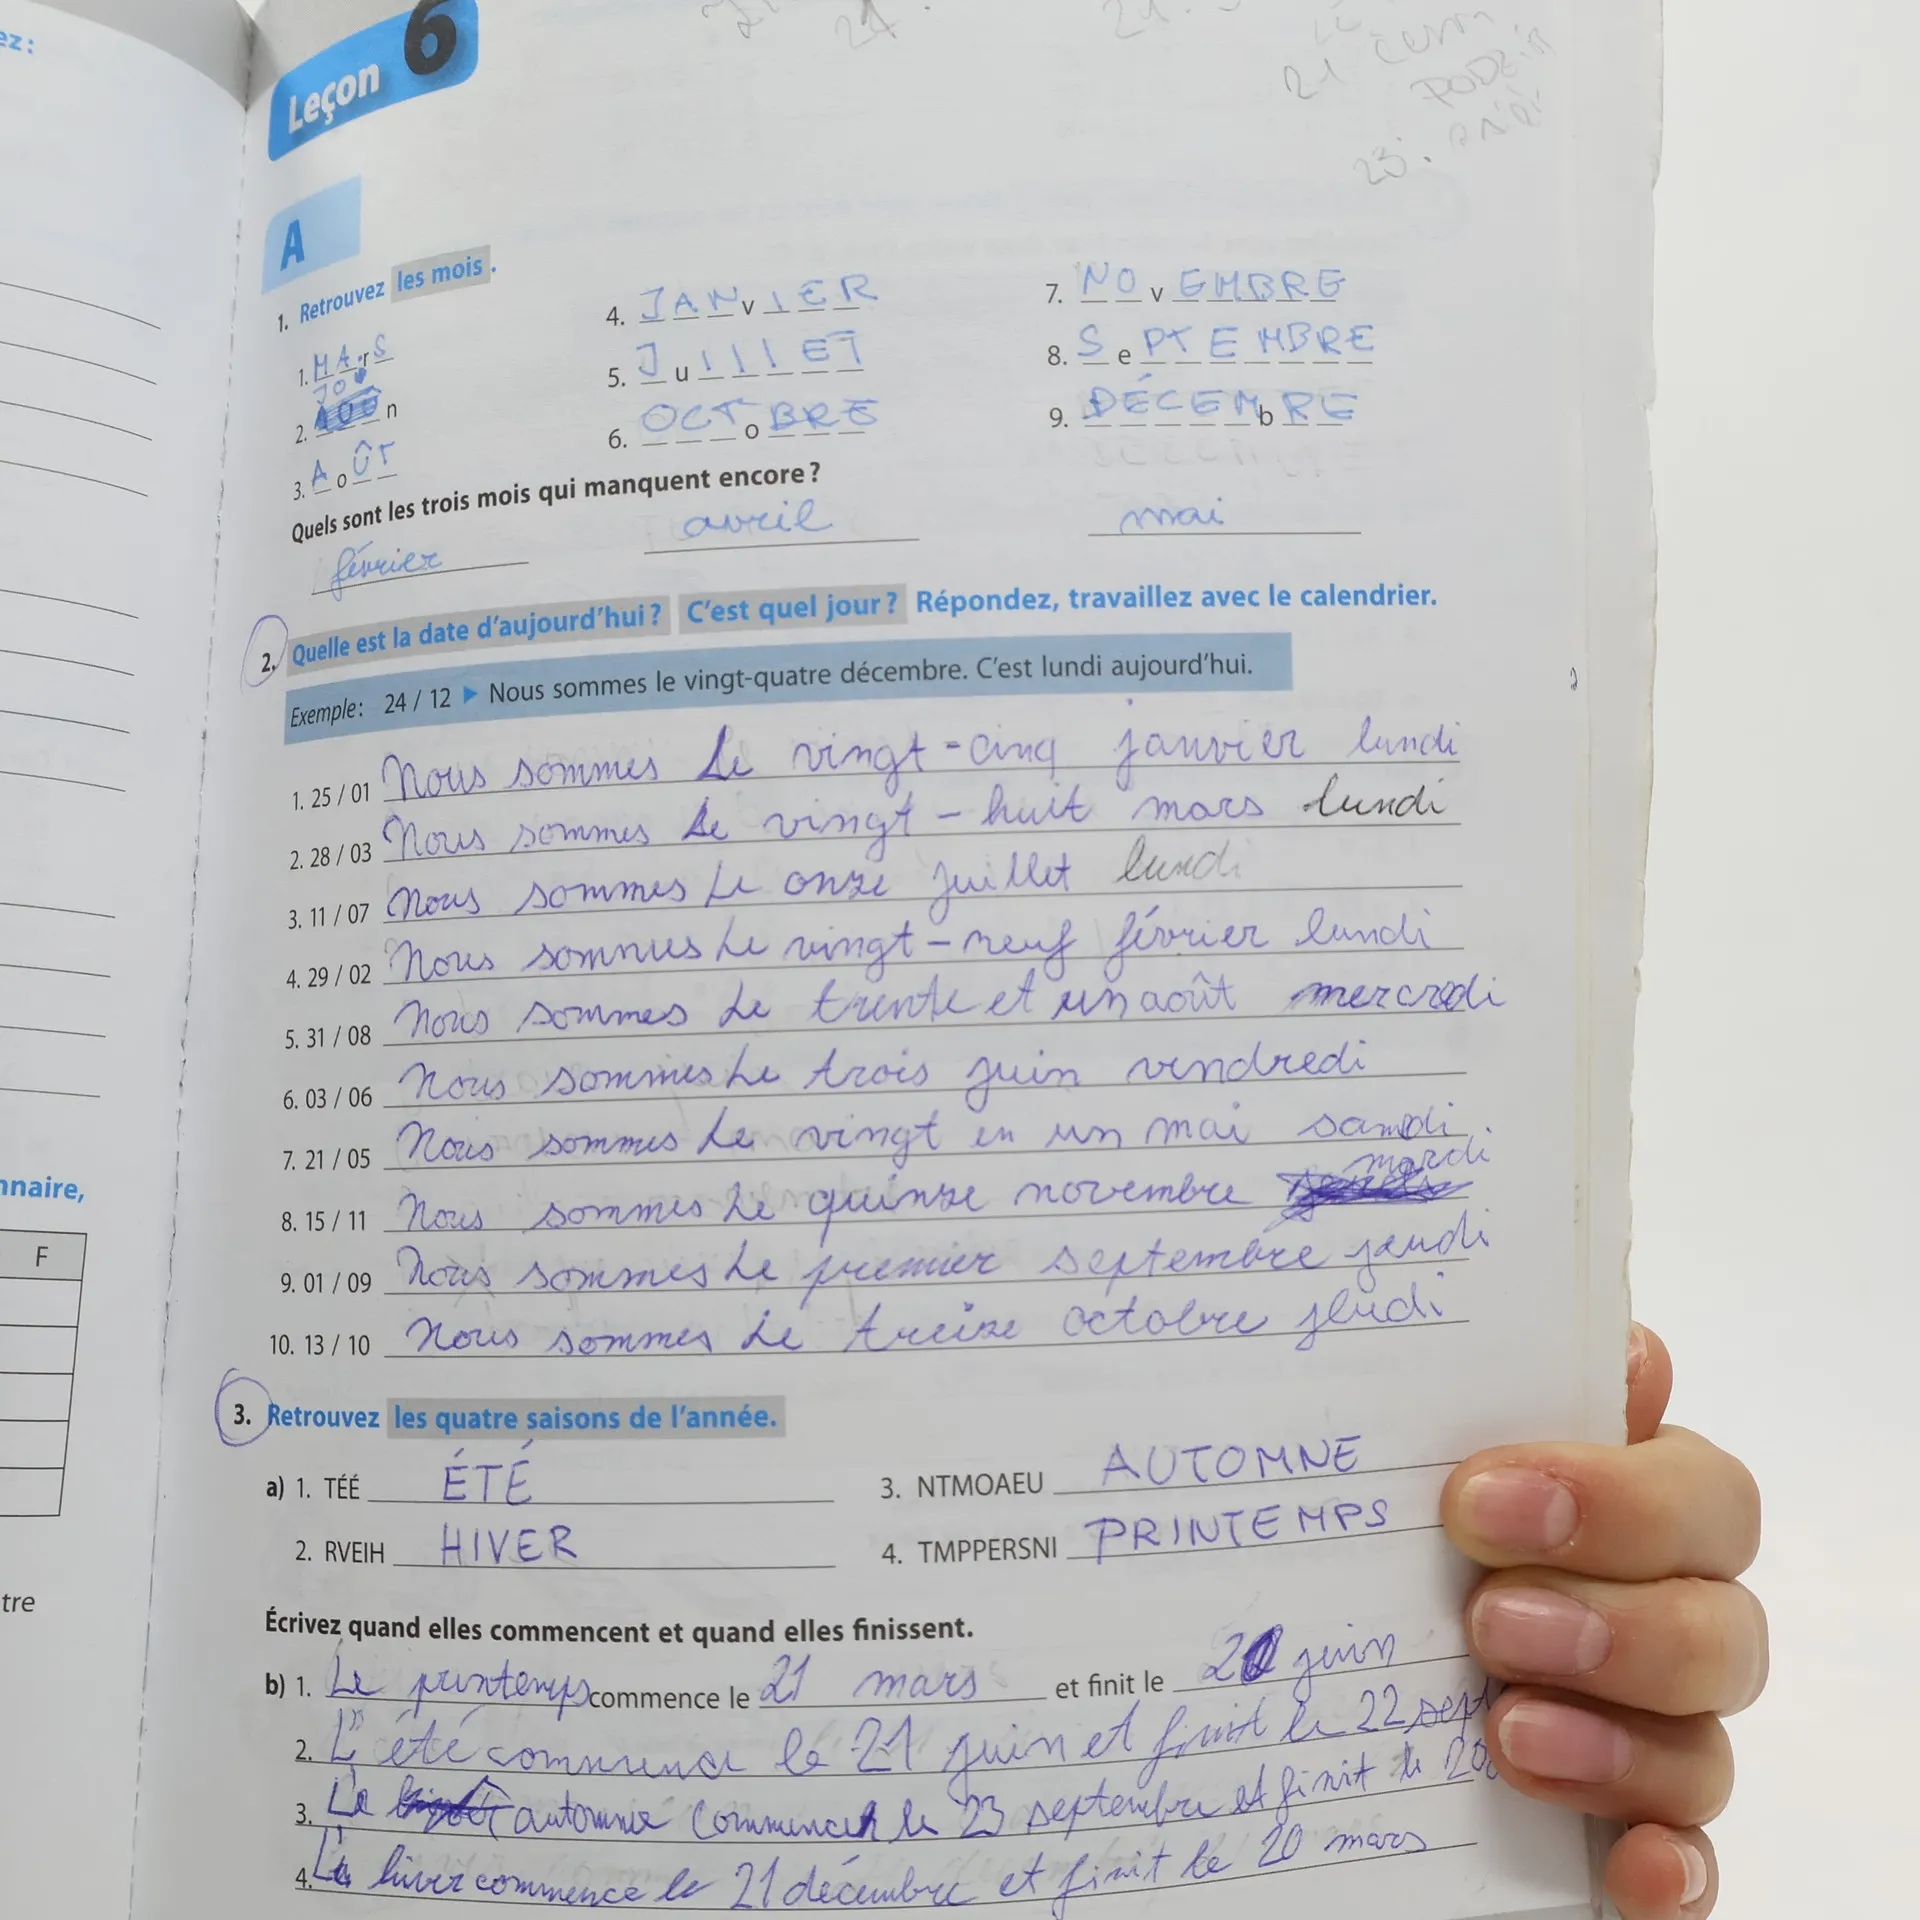 ez:
Leçon 6
21
23.
A
1. Retrouvez les mois.
1. MArS
2. JOUn
3. AoÛT
4. JANvIER
5. JuIllET
6. OCToBRE
7. NOvEMBRE
8. SePTEMBRE
9. DÉCEMbRE
Quels sont les trois mois qui manquent encore ?
février avril mai
2. Quelle est la date d'aujourd'hui ? C'est quel jour ? Répondez, travaillez avec le calendrier.
Exemple: 24 / 12 ▶ Nous sommes le vingt-quatre décembre. C'est lundi aujourd'hui.
1. 25 / 01 Nous sommes Le vingt-cinq janvier lundi
2. 28 / 03 Nous sommes Le vingt-huit mars lundi
3. 11 / 07 Nous sommes Le onze juillet lundi
4. 29 / 02 Nous sommes Le vingt-neuf février lundi
5. 31 / 08 Nous sommes Le trente et un août mercredi
6. 03 / 06 Nous sommes Le trois juin vendredi
7. 21 / 05 Nous sommes Le vingt en un mai samdi
8. 15 / 11 Nous sommes Le quinze novembre mardi
9. 01 / 09 Nous sommes Le premier septembre jeudi
10. 13 / 10 Nous sommes Le treize octobre jeudi
nnaire,
F
3. Retrouvez les quatre saisons de l'année.
a) 1. TÉÉ ÉTÉ
2. RVEIH HIVER
3. NTMOAEU AUTOMNE
4. TMPPERSNI PRINTEMPS
tre
Écrivez quand elles commencent et quand elles finissent.
b) 1. Le printemps commence le 21 mars et finit le 20 juin
2. L'été commence le 21 juin et finit le 22 sept
3. L'automne commence le 23 septembre et finit le 20
4. L'hiver commence le 21 décembre et finit le 20 mars